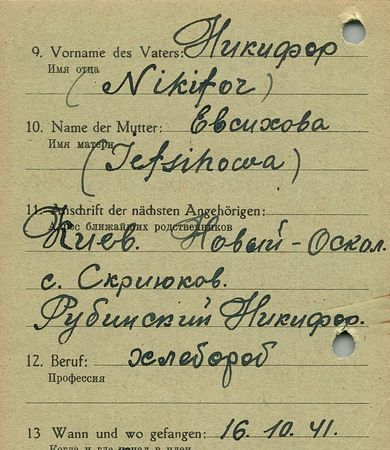 9. Vorname des Vaters: Никифор
Имя отца
(Nikifor)
10. Name der Mutter: Евсихова
Имя матери
(Iefsihowa)
11. Anschrift der nächsten Angehörigen:
Адрес ближайших родственников
Киев. Новый-Оскол.
с. Скриюков.
Рубинский Никифор.
12. Beruf: хлебороб
Профессия
13 Wann und wo gefangen: 16. 10. 41.
Когда и где попал в плен